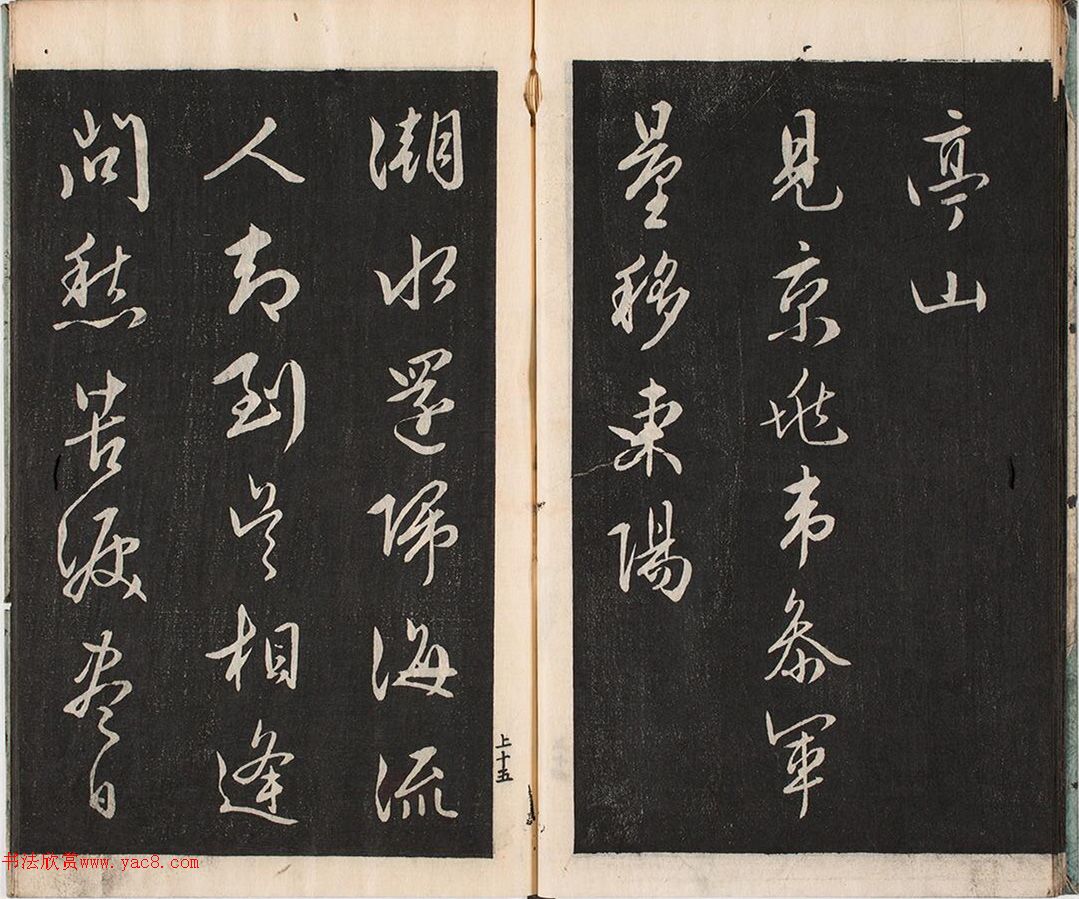 亭山
見京兆韋參軍
量移東陽
潮水還歸海流
人却到吳相逢
問愁苦淚盡日
上十五
书法欣赏www.yac8.com